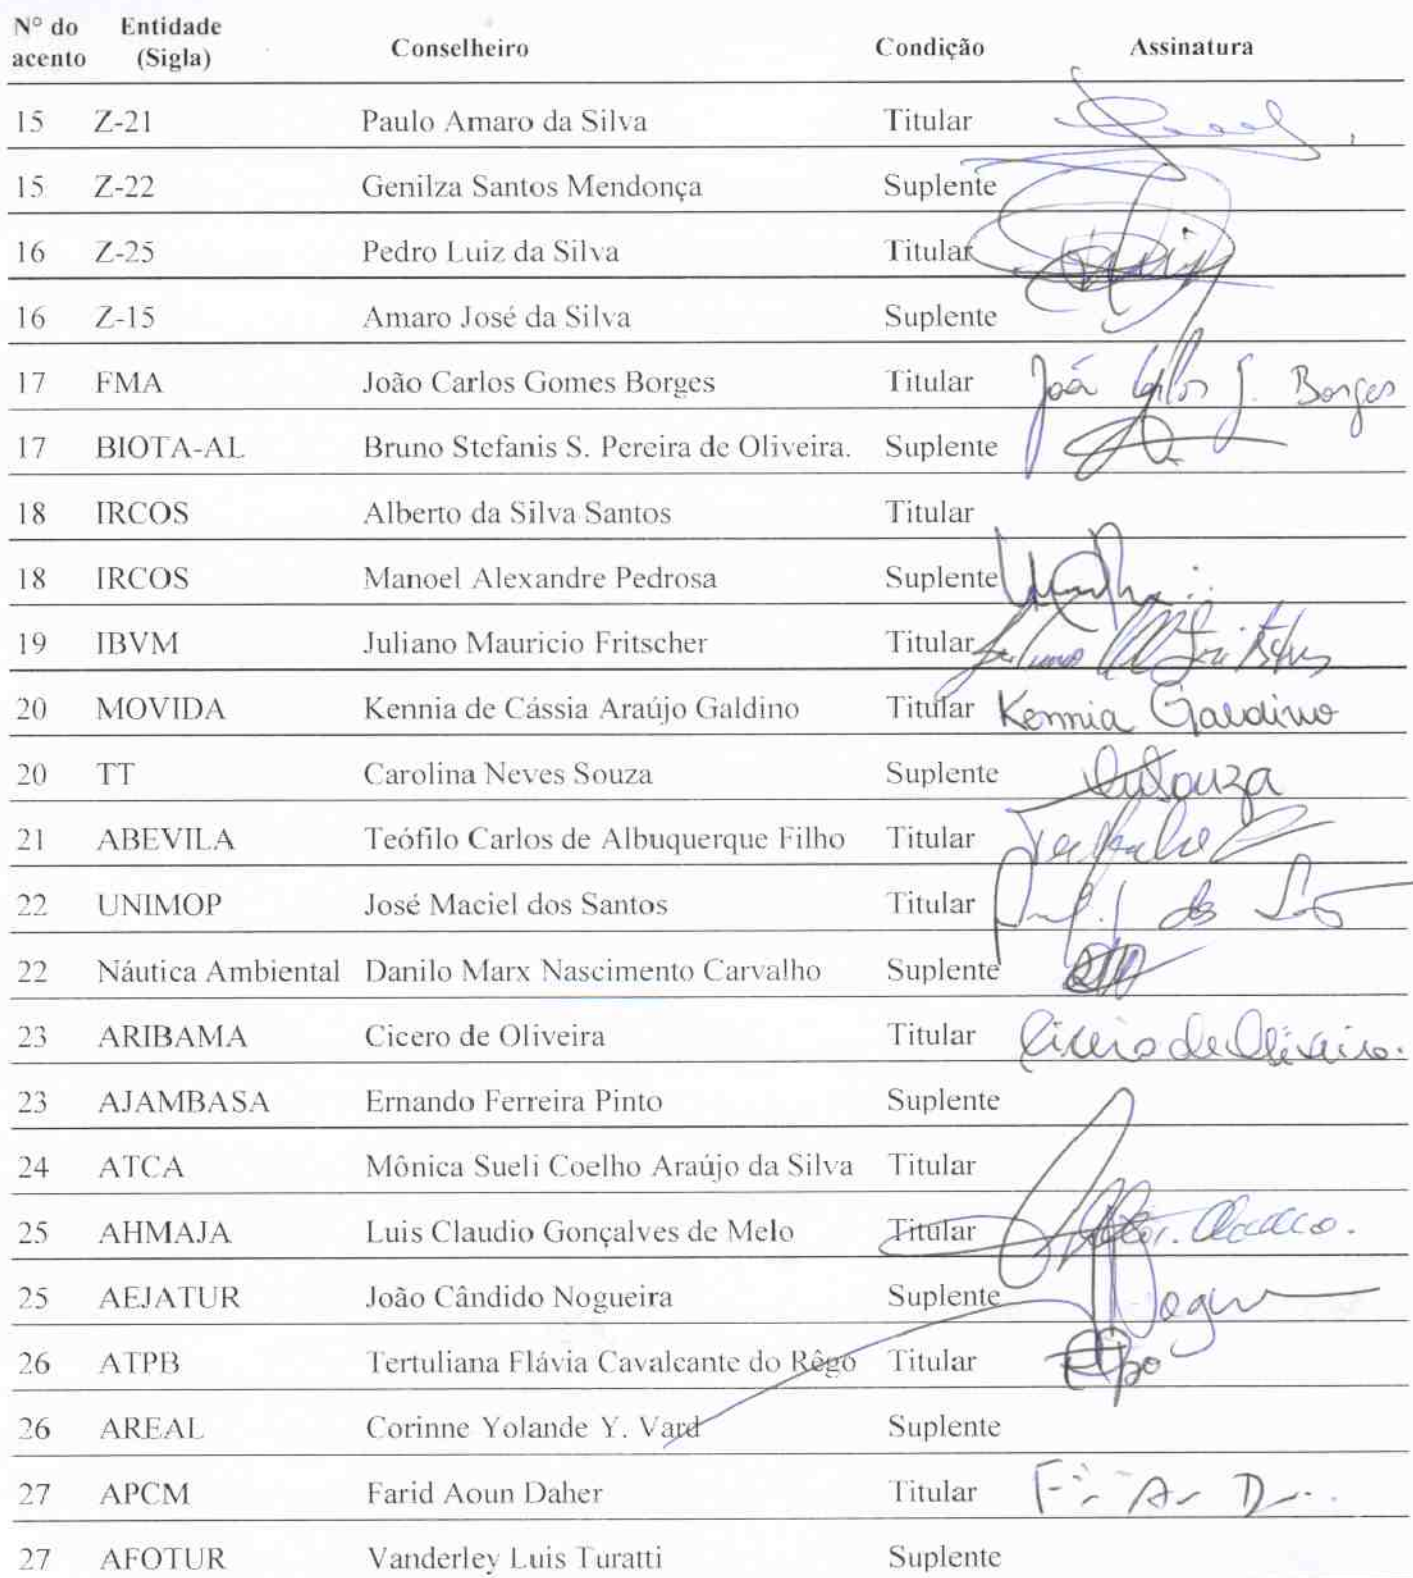 Nº do acento Entidade (Sigla) Conselheiro Condição Assinatura
15 Z-21 Paulo Amaro da Silva Titular
15 Z-22 Genilza Santos Mendonça Suplente
16 Z-25 Pedro Luiz da Silva Titular
16 Z-15 Amaro José da Silva Suplente
17 FMA João Carlos Gomes Borges Titular João Carlos G. Borges
17 BIOTA-AL Bruno Stefanis S. Pereira de Oliveira. Suplente
18 IRCOS Alberto da Silva Santos Titular
18 IRCOS Manoel Alexandre Pedrosa Suplente
19 IBVM Juliano Mauricio Fritscher Titular
20 MOVIDA Kennia de Cássia Araújo Galdino Titular Kennia Galdino
20 TT Carolina Neves Souza Suplente
21 ABEVILA Teófilo Carlos de Albuquerque Filho Titular
22 UNIMOP José Maciel dos Santos Titular
22 Náutica Ambiental Danilo Marx Nascimento Carvalho Suplente
23 ARIBAMA Cicero de Oliveira Titular Cicero de Oliveira.
23 AJAMBASA Ernando Ferreira Pinto Suplente
24 ATCA Mônica Sueli Coelho Araújo da Silva Titular
25 AHMAJA Luis Claudio Gonçalves de Melo Titular
25 AEJATUR João Cândido Nogueira Suplente
26 ATPB Tertuliana Flávia Cavalcante do Rêgo Titular
26 AREAL Corinne Yolande Y. Vard Suplente
27 APCM Farid Aoun Daher Titular
27 AFOTUR Vanderley Luis Turatti Suplente